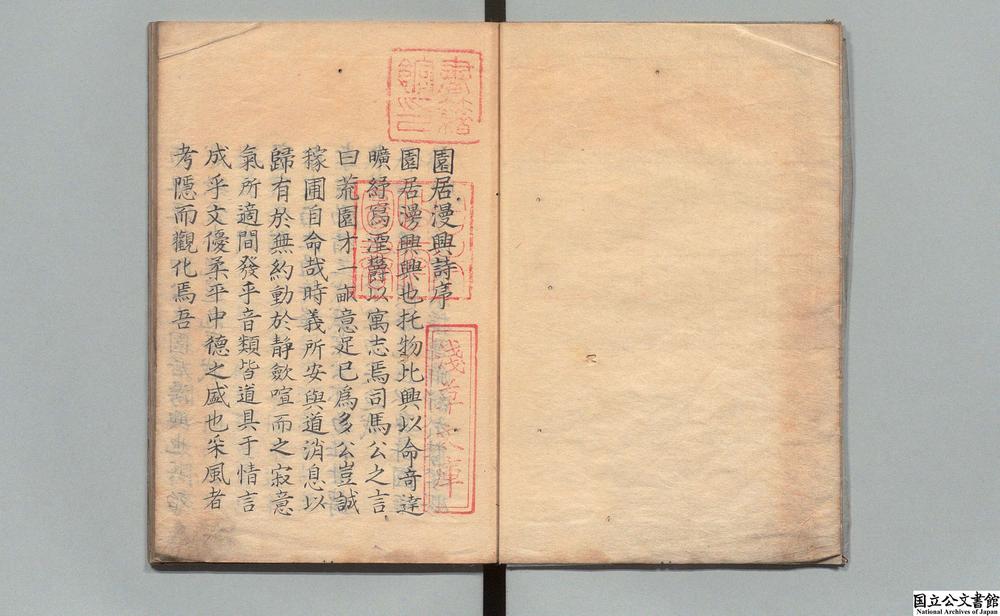 園居漫興詩序
園居漫興興也托物比興以命竒達
曠紓寫湮欝以寓志焉司馬公之言
曰荒園才一畝意足已爲多公豈誠
稼圃自命哉時義所安與道消息以
歸有於無約動於静歛喧而之寂意
氣所適間發乎音類皆道具于情言
成乎文優柔平中德之盛也采風者
考隱而觀化焉吾
淺草文庫
国立公文書館
National Archives of Japan